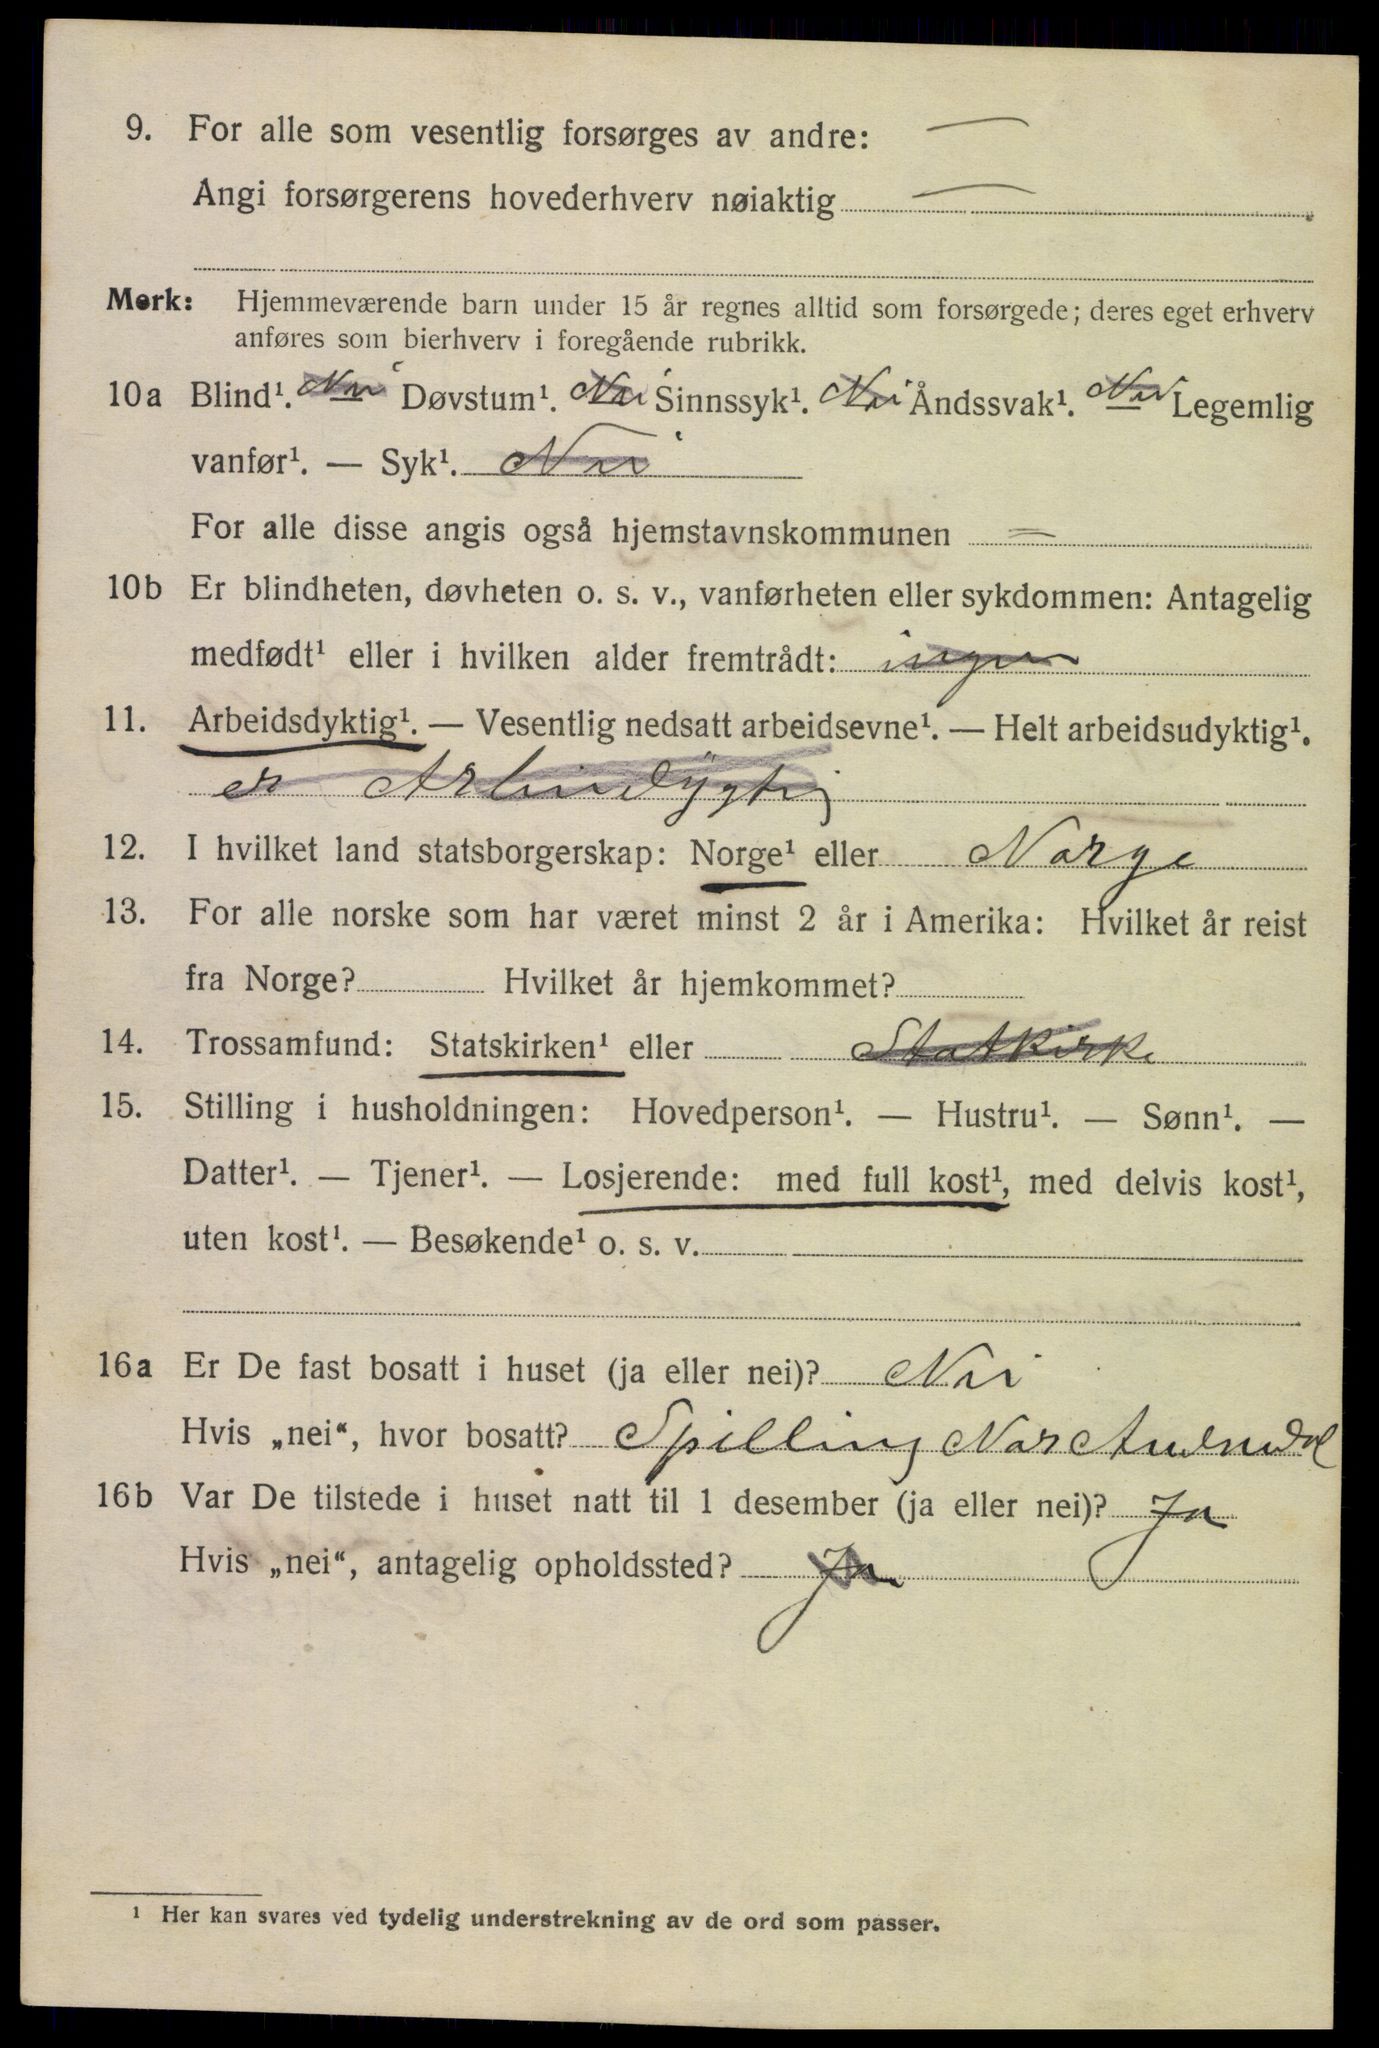 9. For alle som vesentlig forsørges av andre: —
Angi forsørgerens hovederhverv nøiaktig —
Merk: Hjemmeværende barn under 15 år regnes alltid som forsørgede; deres eget erhverv
anføres som bierhverv i foregående rubrikk.
10a Blind¹. Nei Døvstum¹. Nei Sinnssyk¹. Nei Åndssvak¹. Nei Legemlig
vanfør¹. — Syk¹. Nei
For alle disse angis også hjemstavnskommunen =
10b Er blindheten, døvheten o. s. v., vanførheten eller sykdommen: Antagelig
medfødt¹ eller i hvilken alder fremtrådt: ingen
11. Arbeidsdyktig¹. — Vesentlig nedsatt arbeidsevne¹. — Helt arbeidsudyktig¹.
er
12. I hvilket land statsborgerskap: Norge¹ eller Norge
13. For alle norske som har været minst 2 år i Amerika: Hvilket år reist
fra Norge? Hvilket år hjemkommet?
14. Trossamfund: Statskirken¹ eller Statkirke
15. Stilling i husholdningen: Hovedperson¹. — Hustru¹. — Sønn¹. —
Datter¹. — Tjener¹. — Losjerende: med full kost¹, med delvis kost¹,
uten kost¹. — Besøkende¹ o. s. v.
16a Er De fast bosatt i huset (ja eller nei)? Nei
Hvis „nei“, hvor bosatt? Spilling Nor Audnedal
16b Var De tilstede i huset natt til 1 desember (ja eller nei)? Ja
Hvis „nei“, antagelig opholdssted? Ja
¹ Her kan svares ved tydelig understrekning av de ord som passer.